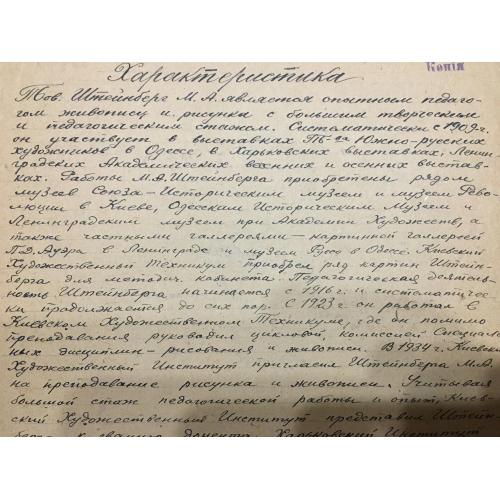 Копія
Характеристика
Тов. Штейнберг М.А. является опытным педаго-
гом живописи и рисунка с большим творческим
и педагогическим стажом. Систематически с 1909 г.
он участвует в выставках Т-ва Южно-русских
художников в Одессе, в Харьковских выставках, Ленин-
градских Академических весенних и осенних выстав-
ках. Работы М.А. Штейнберга приобретены рядом
музеев Союза – Историческим музеем и музеем Рево-
люции в Киеве, Одесским Историческим Музеем и
Ленинградским музеем при Академии Художеств, а
также частными галлереями – картинной галлереей
Ауэра в Ленинграде и музеем Руссо в Одессе. Киевский
Художественный Техникум приобрел ряд картин Штейн-
берга для методич. кабинета. Педагогическая деятель-
ность Штейнберга начинается с 1916 г. и систематичес-
ки продолжается до сих пор. С 1923 г. он работал в
Киевском Художественном Техникуме, где он помимо
преподавания руководил цикловой комиссией специаль-
ных дисциплин – рисования и живописи. В 1934 г. Киевский
Художественный Институт пригласил Штейнберга М.А.
на преподавание рисунка и живописи. Учитывая
большой стаж педагогической работы и опыт, Киев-
ский Художественный Институт представил Штейн-
берга к званию доцента. Харьковский Институт